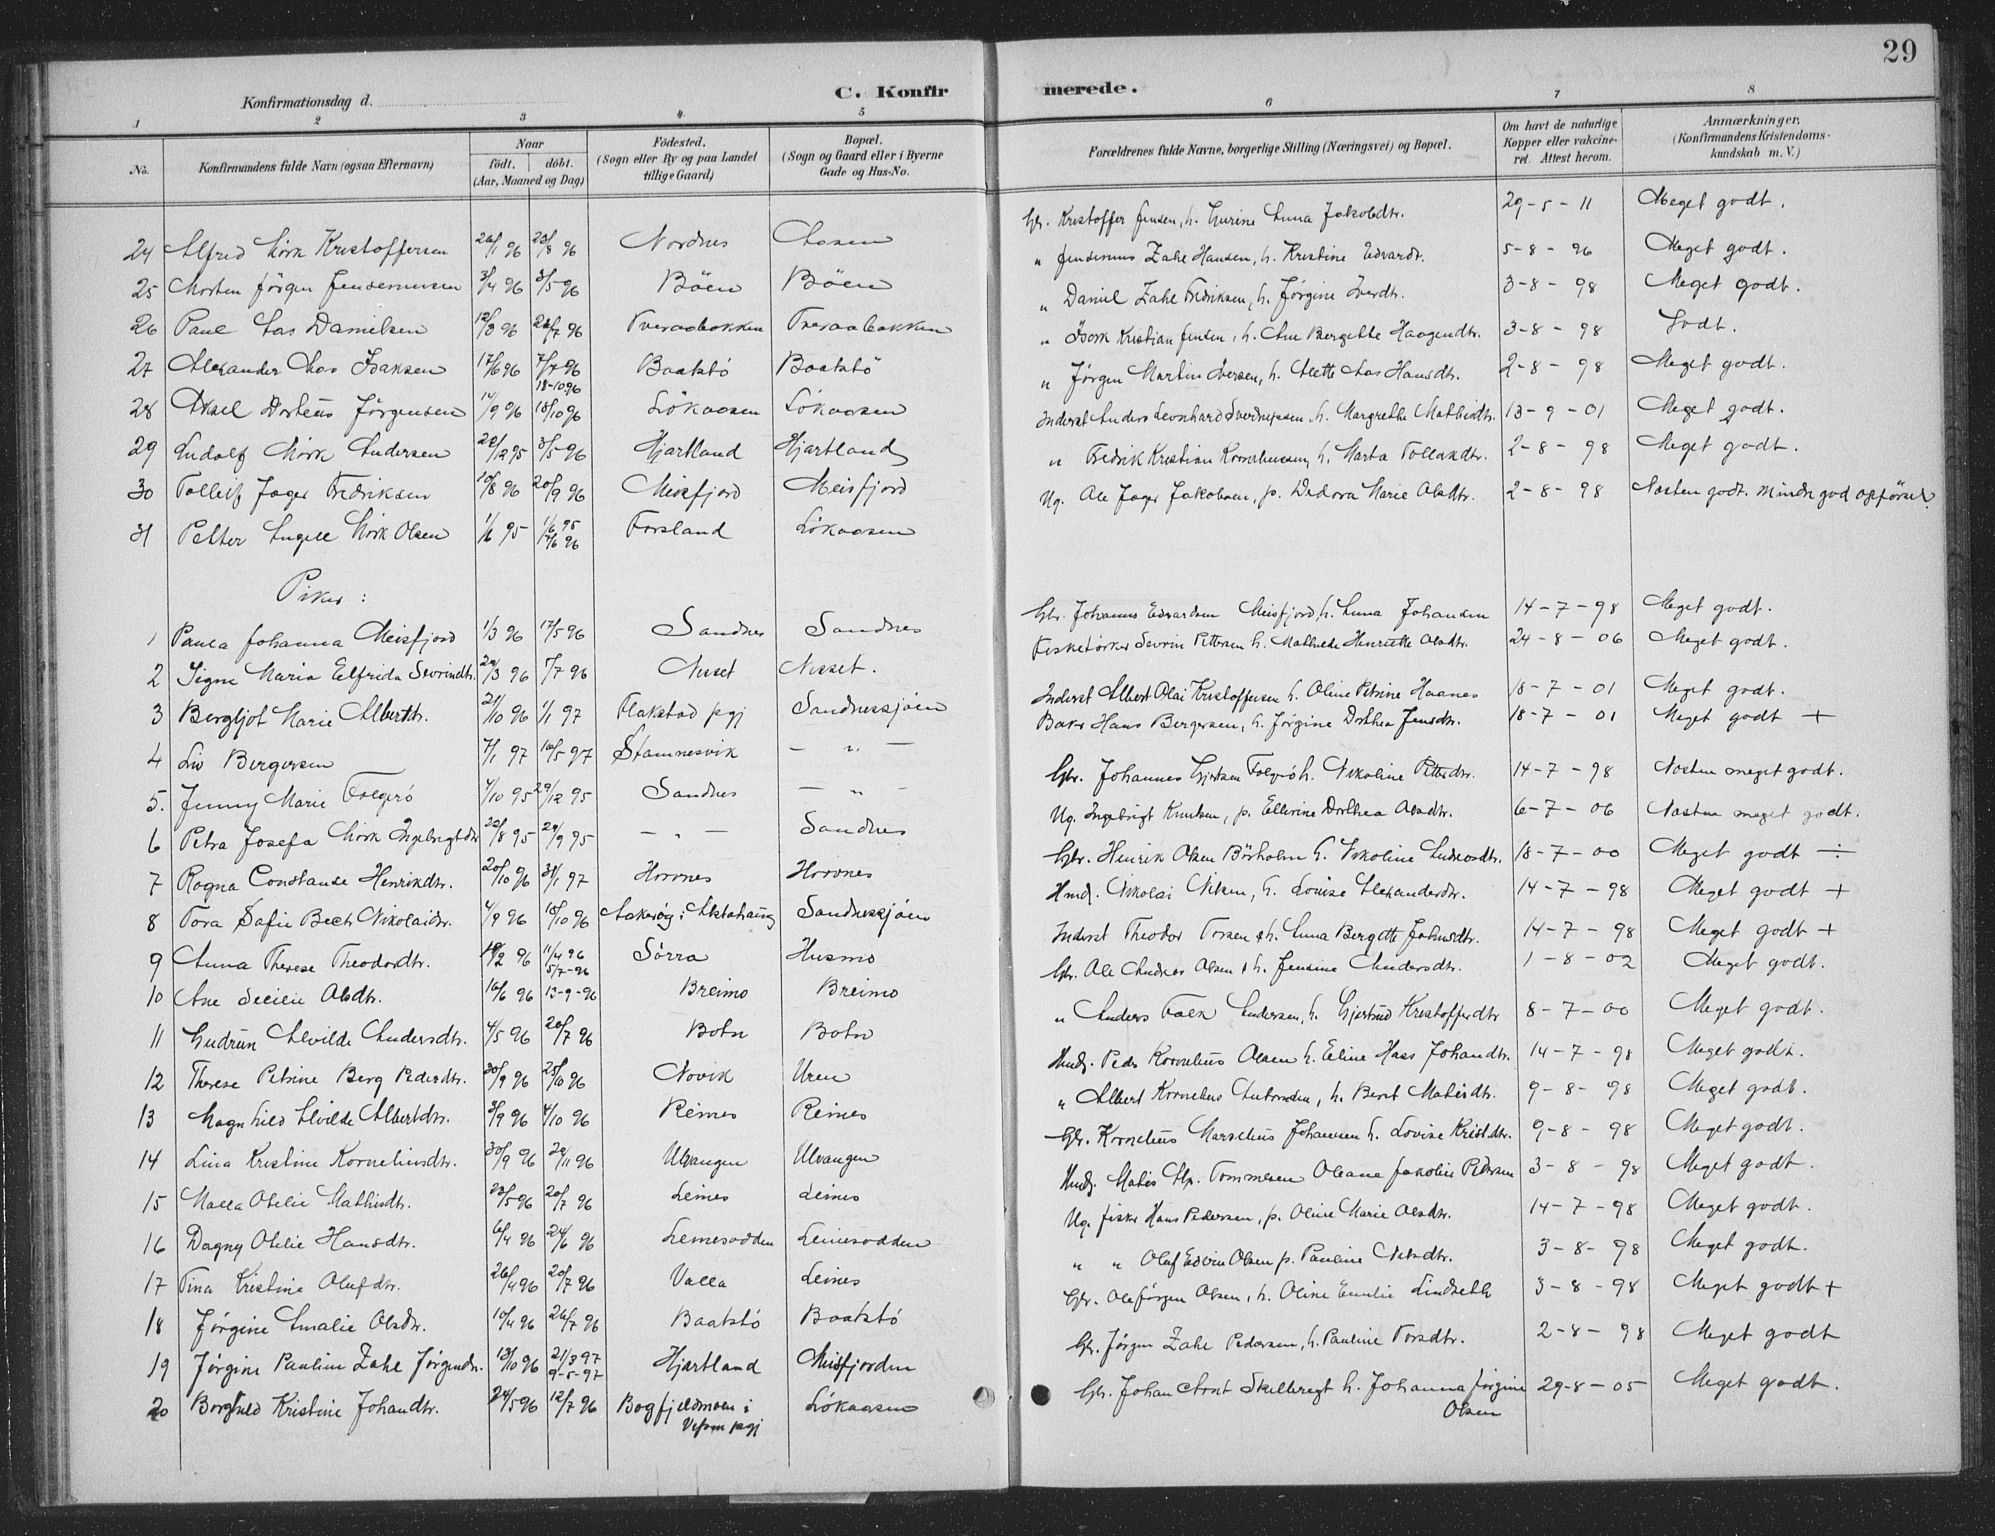 29
Konfirmationsdag d.
C. Konfirmerede.
1 2 3 4 5 6 7 8
No.
Konfirmandens fulde Navn (ogsaa Efternavn)
Naar
født. døbt.
(Aar, Maaned og Dag)
Fødested.
(Sogn eller By og paa Landet
tillige Gaard)
Bopæl.
(Sogn og Gaard eller i Byerne
Gade og Hus-No.
Forældrenes fulde Navne, borgerlige Stilling (Næringsvei) og Bopæl.
Om havt de naturlige
Kopper eller vakcine-
ret. Attest herom.
Anmærkninger.
(Konfirmandens Kristendoms-
kundskab m. V.)
24 Alfred Mørk Kristoffersen 26/1 96 23/8 96 Nordnes Aasen Gbr. Kristoffer Jensen, h. Anna Jakobdtr. 29-5-11 Meget godt.
25 Morten Jörgen Jensenussen 3/4 96 3/5 96 Böen Böen " Jensenius Zahl Hansen, h. Kristine Edvardr. 5-8-96 Meget godt.
26 Paul Aas Danielsen 12/3 96 96 Tveraabakken Tveraabakken " Daniel Zahl Fredriksen, h. Jørgine 3-8-98 Meget godt.
27 Alexander Aas Isaksen 17/6 96 7/7 96 Baatstö Baatstö " Isak Kristian Jensen, h. Ane Bergette Haagendtr. 3-8-98 Godt.
28 Aksel Dorteus Jörgensen 14/9 96 18-10 96 18/10 96 Lökaasen Lökaasen " Jörgen Martin Iversen, h. Alette Aas Hansdtr. 2-8-98 Meget godt.
29 Ludolf Mörk Andersen 22/12 95 3/5 96 Hjartland Hjartland Inderst Anders Leonhard h. Margrethe 13-9-01 Meget godt.
30 Tolleif Jager Fredriksen 10/8 96 20/9 96 Meisfjord Meisfjord " Fredrik Kristian Korneliussen, h. Marta Tollevdtr. 2-8-98 Meget godt.
31 Petter Angell Mörk Olsen 1/6 95 1/6 95 96 Forsland Lökaasen Ug. Ole Jager Jakobsen, p. Dedora Marie Olsdtr. 2-8-98 Næsten godt. Mindre god opförsel.
Piker:
1 Paula Johanna Meisfjord 1/3 96 17/5 96 Sandnes Sandnes Gbr. Johannes Edvardsen Meisfjord, h. Anna Johansen 14-7-98 Meget godt.
2 Signe Maria Elfrida Sevrindtr. 29/3 96 5/7 96 Nisset Nisset. Fisketörker Sevrin Pettersen h. Mathilde Henriette Olsdtr. 24-8-06 Meget godt.
3 Bergljot Marie Albertdtr. 21/10 96 1/1 97 Flakstad pgj Sandnessjöen Inderst Albert Olai Kristoffersen h. Oline Petrine Haanes 18-7-01 Meget godt.
4 Liv Bergersen 7/1 97 16/5 97 Stamnesvik — " — Baker Hans Bergersen, h. Jörgine Dorthea Jensdtr. 18-7-01 Meget godt +
5. Jenny Marie Folgerö 4/10 95 29/12 95 Sandnes — " — Gbr. Johannes Gjertsen Folgerö h. Nikoline Pettersdtr. 14-7-98 Næsten meget godt.
6 Petra Josefa Mörk Ingebrigtdtr 22/8 95 29/9 95 — " — Sandnes Ug. Ingebrigt Knutsen, p. Ellevine Dorthea Olsdtr. 6-7-06 Næsten meget godt.
7 Ragna Constanse Henrikdtr. 20/10 96 31/1 97 Horvnes Horvnes Gbr. Henrik Olsen Börholm h. Nikoline Andersdtr. 18-7-00 Meget godt ÷
8 Tora Sofie Bech Nikolaidtr. 4/9 96 18/10 96 Sandnessjöen Hmd. Nikolai Nilsen, h. Lovise Alexanderdtr. 14-7-98 Meget godt +
9 Anna Therese Theodordtr. 96 11/4 96 5/7-96 Sörra Husmo Inderst Theodor Torsen h. Anna Bergitte 14-7-98 Meget godt +
10 Ane Secilie Olsdtr. 16/6 96 13-9-96 Breimo Breimo Gbr. Ole Andreas Olsen h. Jensine Andersdtr. 1-8-02 Meget godt.
11 Gudrun Alvilde Andersdtr. 4/5 96 20/7 96 Botn Botn " Anders Falk Andersen, h. Gjertrud Kristofferdtr 8-7-00 Meget godt.
12 Therese Petrine Berg Pedersdtr. 20/9 96 25/10 96 Novik Uren Hmd. Peder Kornelius Olsen h. Eline Hass Johandtr. 14-7-98 Meget godt.
13 Magnhild Alvilde Albertdtr. 3/9 96 4/10 96 Reines Reines " Albert Kornelius h. Berit 9-8-98 Meget godt.
14 Lina Kristine Korneliusdtr. 30/9 96 29/11 96 Ulvangen Ulvangen Gbr. Kornelius Marselius Johansen h. Lovise Krist.dtr. 9-8-98 Meget godt.
15 Malla Otelie Mathisdtr. 23/5 96 20/7 96 Leines Leines Hmd. Matis Tommesen Oleane Jakobie Pedersen 3-8-98 Meget godt.
16 Dagny Otilie Hansdtr. 6/4 96 24/6 96 Leinesodden Leinesodden Ug. fisker Hans Pedersen, p. Oline Marie Olsdtr. 14-7-98 Meget godt.
17 Tina Kristine Olufdtr. 26/4 96 20/7 96 Valla Leines " " Olaf Edvin Olsen p. Pauline Nilsdtr. 3-8-98 Meget godt.
18 Jörgine Amalie Olsdtr. 10/4 96 26/7 96 Baatstö Baatstö Gbr. Ole Jörgen Olsen, h. Oline Emilie Lindseth 3-8-98 Meget godt +
19 Jörgine Pauline Zahl Jörgendtr. 13/10 96 21/3 97 9-5-97 Hjartland Meisfjorden Gbr. Jörgen Zahl Pedersen, h. Pauline Torsdtr. 2-8-98 Meget godt
20 Borghild Kristine Johandtr. 24/5 96 12/7 96 Bogfjeldmoen i Vefsen pgj Lökaasen Gbr. Johan Arnt Skillbregt h. Johanna Jörgine Olsen 29-8-05 Meget godt.